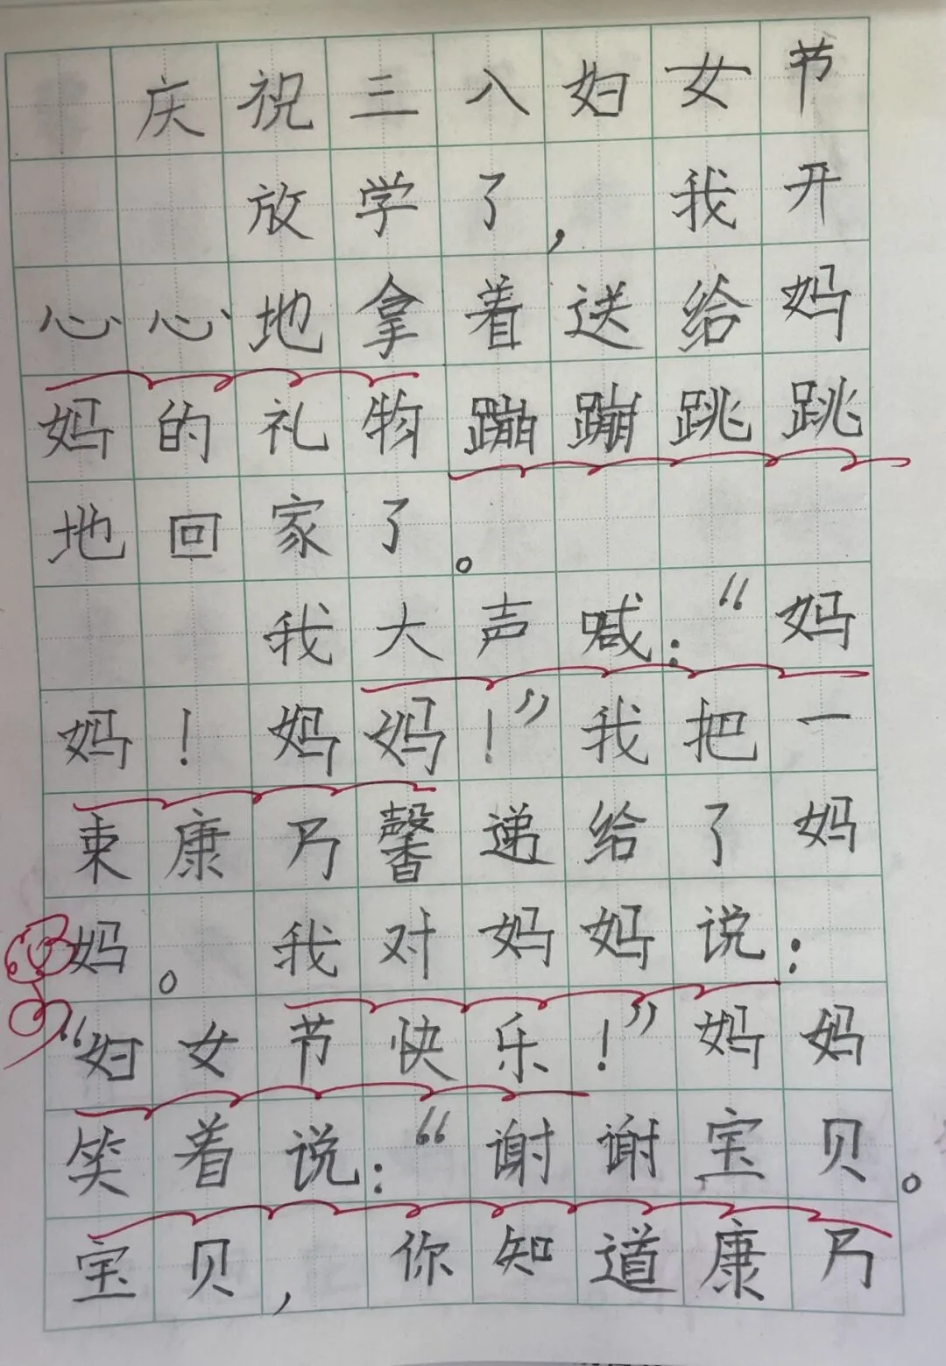 庆祝三八妇女节
放学了，我开
心心地拿着送给妈
妈的礼物蹦蹦跳跳
地回家了。
我大声喊：“妈
妈！妈妈！”我把一
束康乃馨递给了妈
妈。我对妈妈说：
“妇女节快乐！”妈妈
笑着说：“谢谢宝贝。
宝贝，你知道康乃